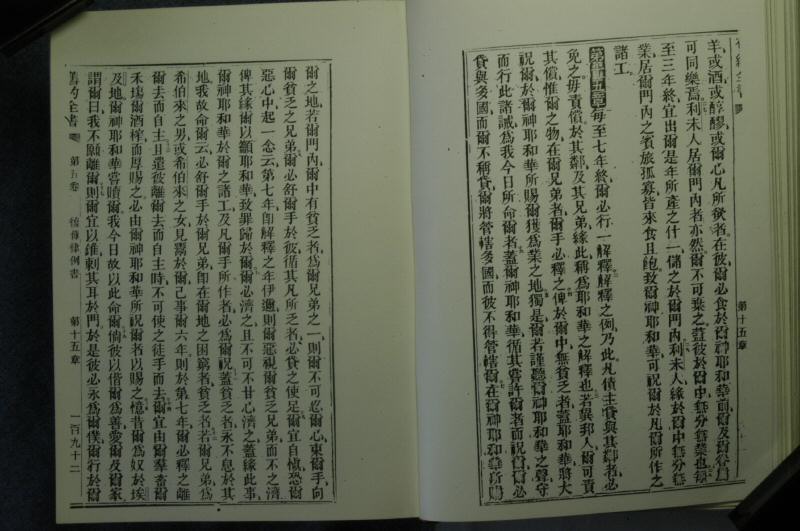 羊或酒或醇醪或爾心凡所欲者在彼爾必食於爾神耶和華前爾及爾眷屬
可同樂焉利未人居爾門內者亦然爾不可棄之蓋彼於爾中無分無業也每
至三年終宜出爾是年所產之什一儲之於爾門內利未人緣於爾中無分無
業居爾門內之賓旅孤寡皆來食且飽致爾神耶和華可祝爾於凡爾所作之
諸工
第十五章 每至七年終爾必行一解釋解釋之例乃此凡債主貸與其鄰者必
免之毋責償於其鄰及其兄弟緣此稱爲耶和華之解釋也若異邦人爾可責
其償惟爾之物在爾兄弟者爾手必釋之俾於爾中無貧乏者蓋耶和華將大
祝爾於爾神耶和華所賜爾獲爲業之地獨是爾若謹聽爾神耶和華之聲守
而行此諸誡爲我今日所命爾者蓋爾神耶和華循其嘗許爾者而祝爾爾必
貸與多國而爾不稱貸爾將管轄多國而彼不得管轄爾在爾神耶和華所賜
第十五章
爾之地若爾門內爾中有貧乏者爲爾兄弟之一則爾不可忍爾心束爾手向
爾貧乏之兄弟爾必舒爾手於彼循其凡所乏者必貸之使足爾宜自愼恐爾
惡心中起一念云第七年卽解釋之年伊邇則爾惡視爾貧乏兄弟而不之濟
俾其緣爾以籲耶和華致罪歸於爾爾必濟之且不可不甘心濟之蓋緣此事
爾神耶和華於爾之諸工及凡爾手所作者必爲爾祝蓋貧乏者永不息於其
地我故命爾云必舒爾手於爾兄弟卽在爾地之困窮者貧乏者若爾兄弟爲
希伯來之男或希伯來之女見鬻於爾己事爾六年則於第七年爾必釋之離
爾去而自主且還彼離爾去而自主時不可使之徒手而去爾宜由爾羣畜爾
禾場爾酒榨而厚賜之必由爾神耶和華所祝爾者以賜之憶昔爾爲奴於埃
及地爾神耶和華嘗贖爾我今日故以此命爾倘彼以偕爾爲善愛爾及爾家
謂爾曰我不願離爾則爾宜以錐刺其耳於門於是彼必永爲爾僕爾行於爾
舊約全書 第五卷 律例書 第十五章 一百九十二